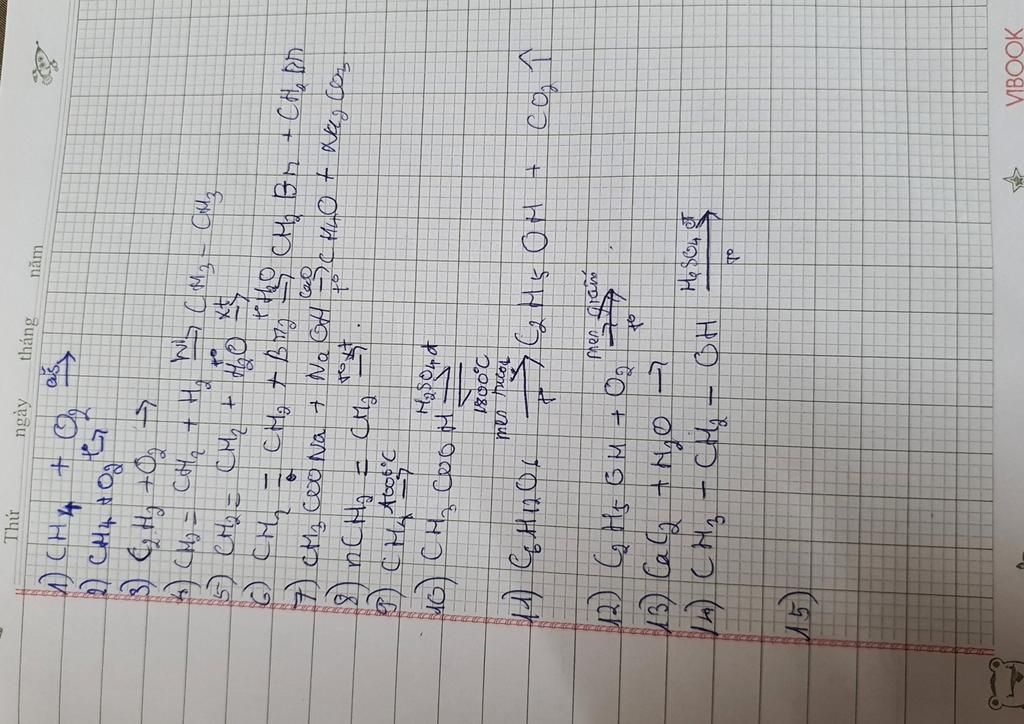 Thứ ngày tháng năm
1) CH4 + O2 as→
2) CH4 + O2 t°→
3) C2H2 + O2 →
4) CH2 = CH2 + H2 Ni→ CH3 - CH3
t°
5) CH2 = CH2 + H2O xt→
t° H2O
6) CH2 = CH2 + Br2 → CH2Br + CH2Br
7) CH3COONa + NaOH CaO→ CH4O + Na2CO3
t°
8) nCH2 = CH2 t° xt→ .
9) CH4 1000°C→
10) CH3COOH H2SO4đ
1800°C
men rượu
11) C6H12O6 → C2H5OH + CO2 ↑
t°
12) C2H5OH + O2 men giấm→
t°
13) CaC2 + H2O →
14) CH3 - CH2 - OH H2SO4đ→
t°
15)
VIBOOK